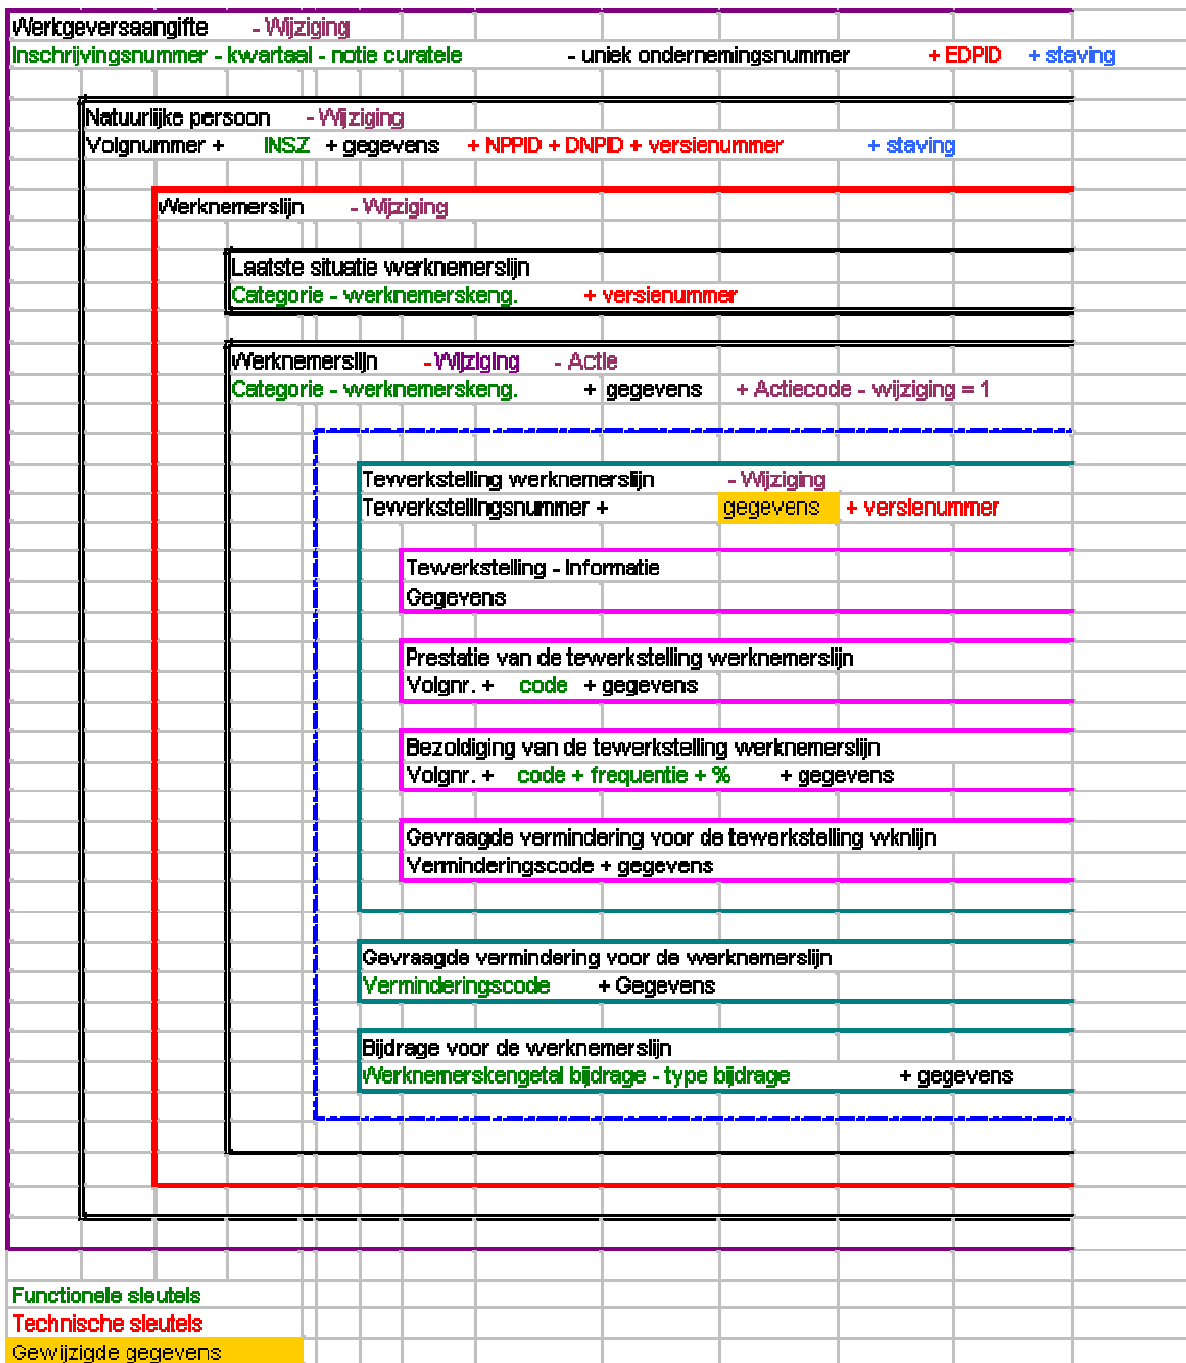 Werkgeversaangifte - Wijziging
Inschrijvingsnummer - kwartaal - notie curatele - uniek ondernemingsnummer + EDPID + staving
Natuurlijke persoon - Wijziging
Volgnummer + INSZ + gegevens + NPPID + DNPID + versienummer + staving
Werknemerslijn - Wijziging
Laatste situatie werknemerslijn
Categorie - werknemerskeng. + versienummer
Werknemerslijn - Wijziging - Actie
Categorie - werknemerskeng. + gegevens + Actiecode - wijziging = 1
Tewerkstelling werknemerslijn - Wijziging
Tewerkstellingsnummer + gegevens + versienummer
Tewerkstelling - Informatie
Gegevens
Prestatie van de tewerkstelling werknemerslijn
Volgnr. + code + gegevens
Bezoldiging van de tewerkstelling werknemerslijn
Volgnr. + code + frequentie + % + gegevens
Gevraagde vermindering voor de tewerkstelling wknlijn
Verminderingscode + gegevens
Gevraagde vermindering voor de werknemerslijn
Verminderingscode + Gegevens
Bijdrage voor de werknemerslijn
Werknemerskengetal bijdrage - type bijdrage + gegevens
Functionele sleutels
Technische sleutels
Gewijzigde gegevens